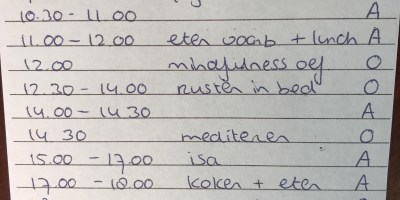 10.30 - 11.00 A
11.00 - 12.00 eten voorb + lunch A
12.00 mindfulness oef O
12.30 - 14.00 rusten in bed O
14.00 - 14.30 A
14.30 mediteren O
15.00 - 17.00 isa A
17.00 - 18.00 koken + eten A